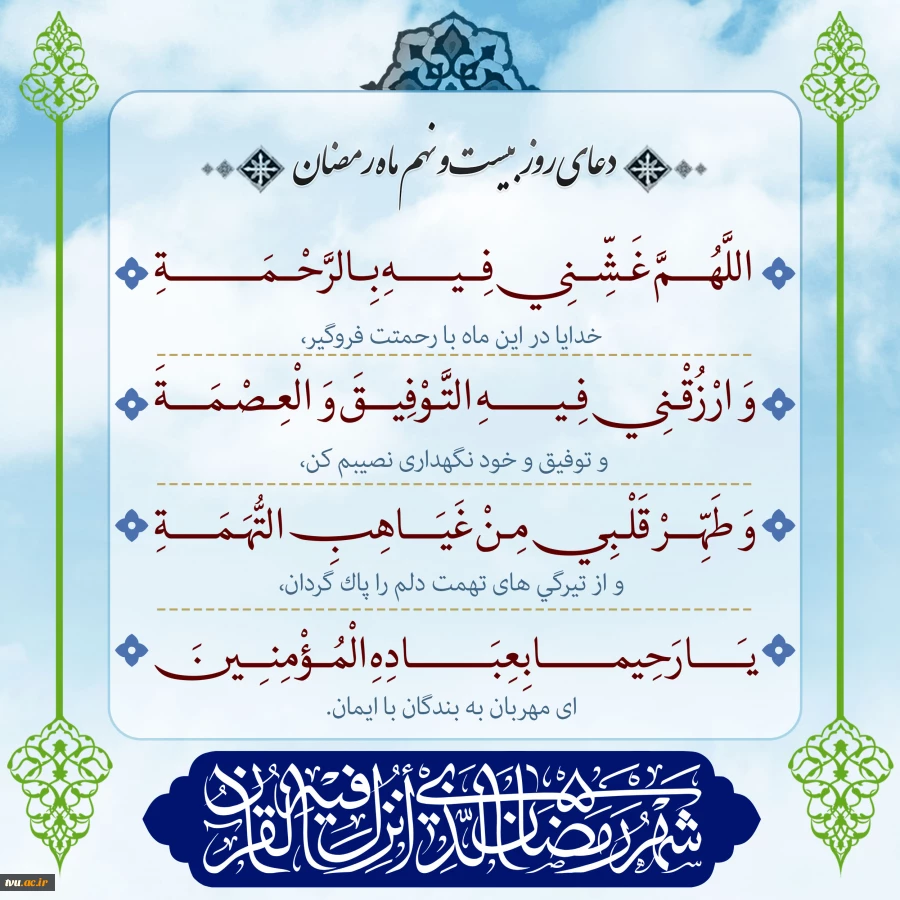 دعای روز بیست و نهم ماه رمضان
اللَّهُمَّ غَشِّنِي فِيهِ بِالرَّحْمَةِ
خدایا در این ماه با رحمتت فروگیر،
وَ ارْزُقْنِي فِيهِ التَّوْفِيقَ وَ الْعِصْمَةَ
و توفیق و خود نگهداری نصیبم کن،
وَ طَهِّرْ قَلْبِي مِنْ غَيَاهِبِ التُّهَمَةِ
و از تیرگي های تهمت دلم را پاك گردان،
يَا رَحِيما بِعِبَادِهِ الْمُؤْمِنِينَ
ای مهربان به بندگان با ایمان.
شَهْرُ رَمَضَانَ الَّذِي أُنْزِلَ فِيهِ الْقُرْآنُ
tvu.ac.ir